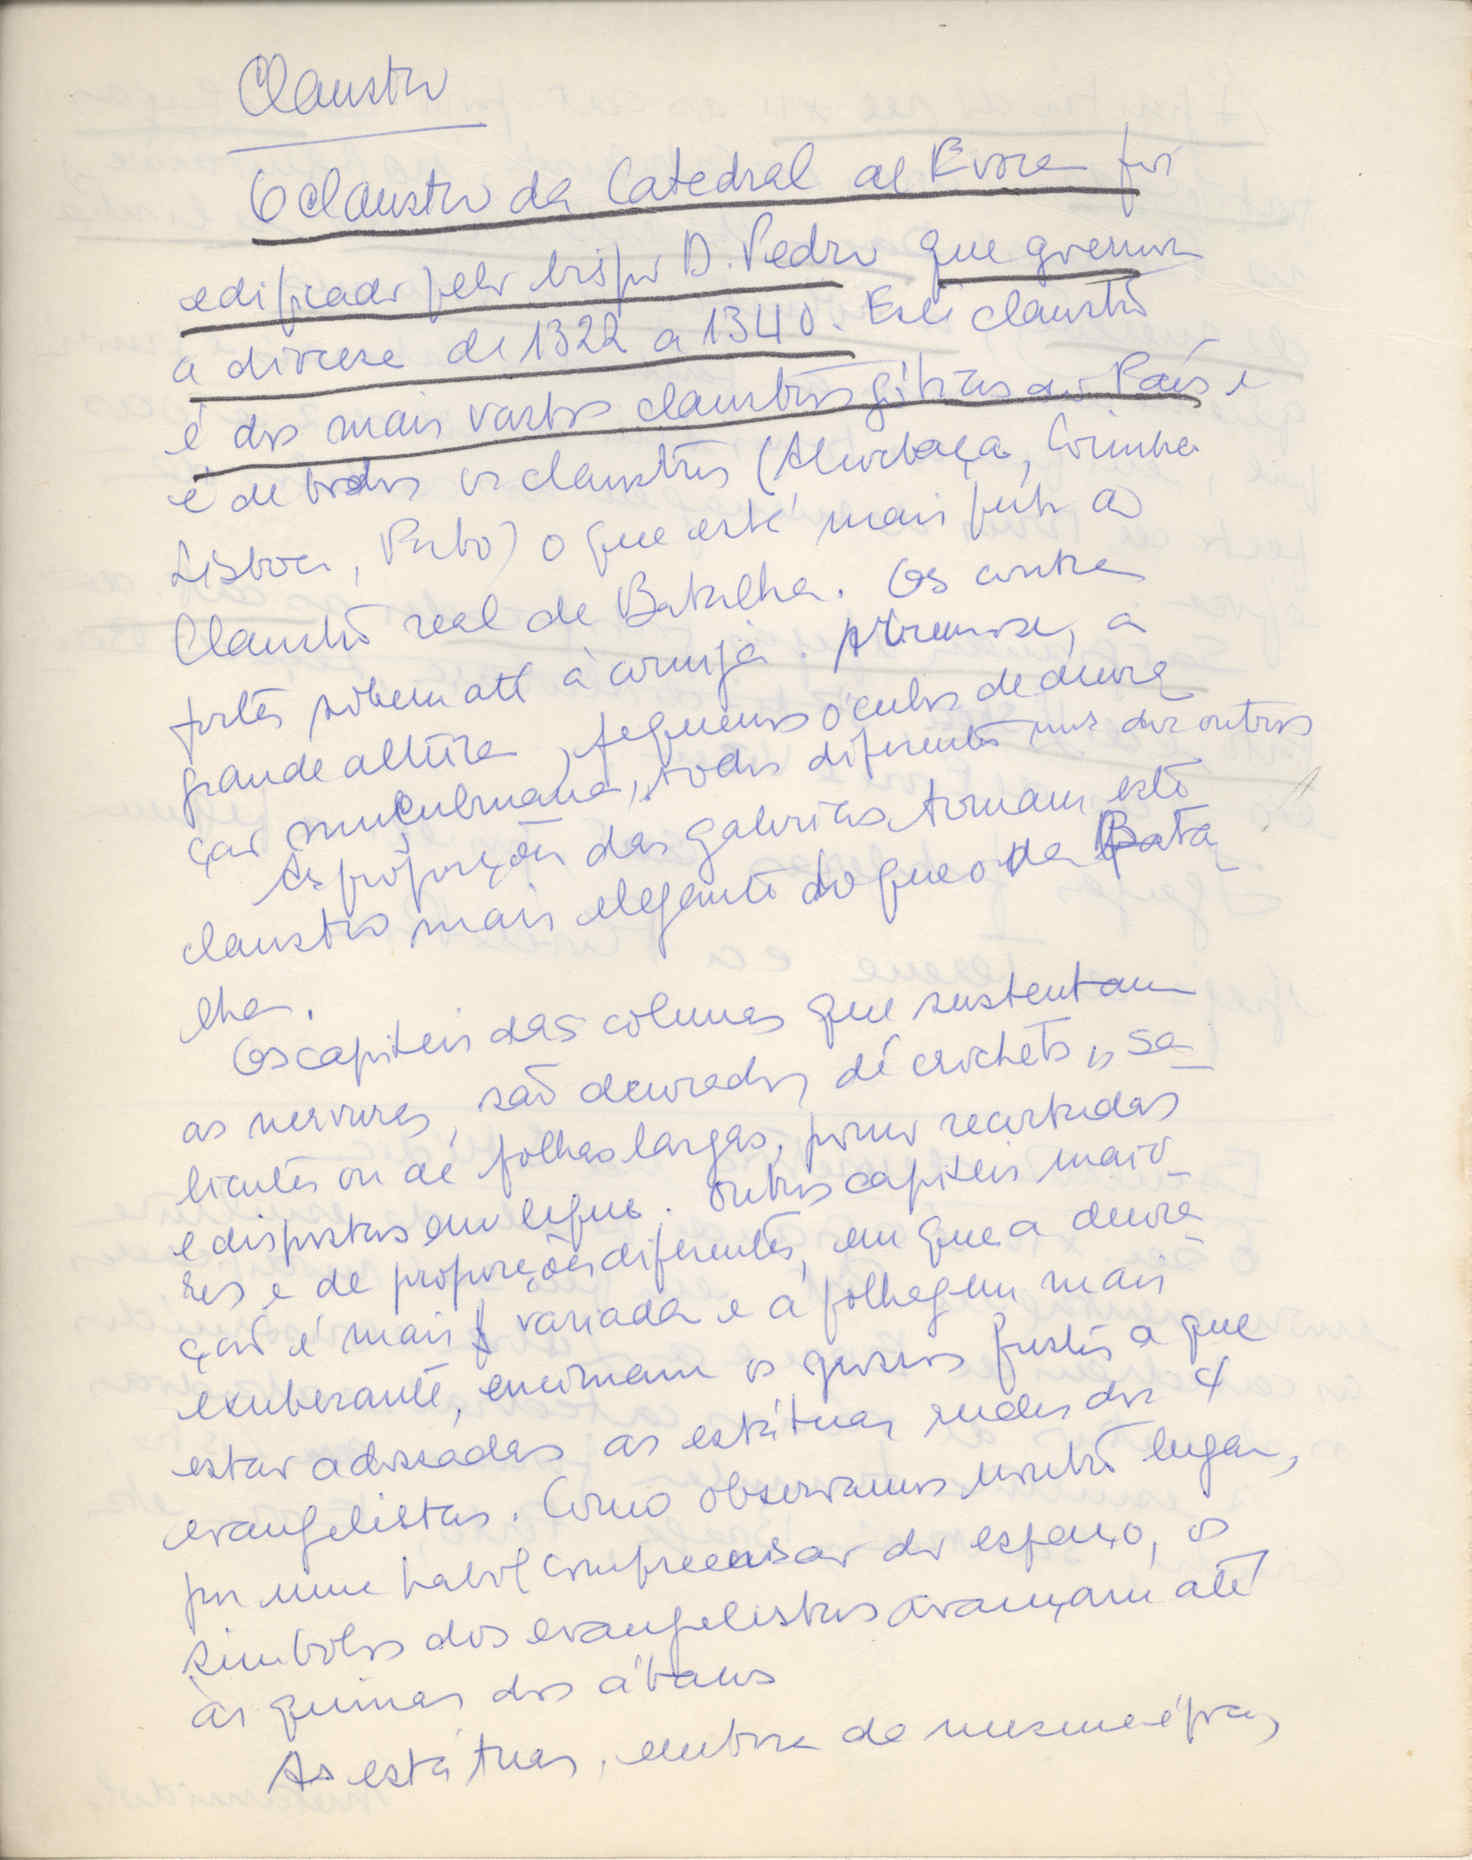 Claustro
O claustro da Catedral de Evora foi
edificado pelo bispo D. Pedro que governou
a diocese de 1322 a 1340. Este claustro
é dos mais vastos claustros góticos do País e
é de todos os claustros (Alcobaça, Coimbra
Lisboa, Porto) o que está mais perto do
Claustro real de Batalha. Os contra
fortes sobem até à cornija. Abrem-se, a
grande altura, pequenos óculos de decora
ção muçulmana, todos diferentes uns dos outros
As proporções das galerias tornam este
claustro mais elegante do que o da Bata
lha.
Os capiteis das colunas que sustentam
as nervuras, são decorados de crochets, sa
lientes ou de folhas largas, pouco recortadas
e dispostas em leque. Outros capiteis maio
res e de proporções diferentes, em que a decora
ção é mais variada e a folhagem mais
exuberante, encimam os grossos fustes a que
estão adossadas as estátuas rudes dos 4
evangelistas. Como observamos noutro lugar,
por uma habil compreensão do espaço, os
simbolos dos evangelistas avançam até
às quinas dos ábacos
As estátuas, embora da mesma época,